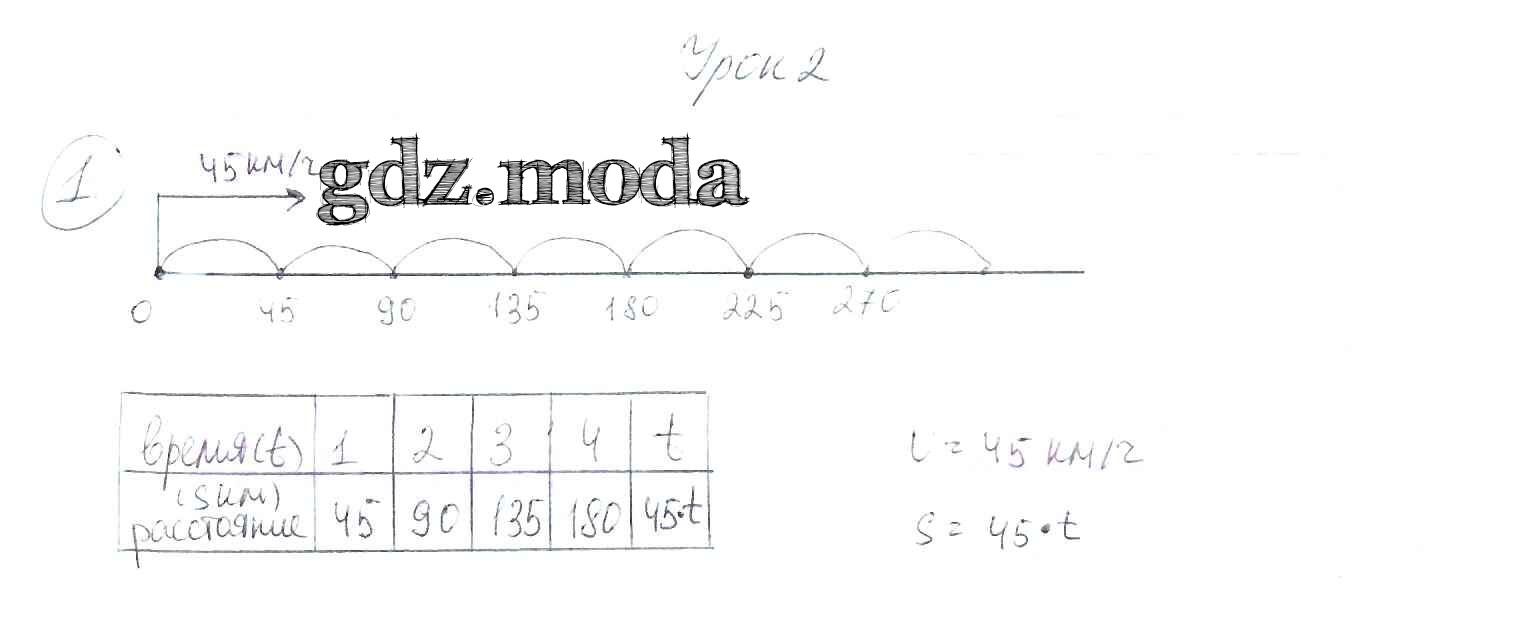 Урок 2
1
45 км/г
gdz.moda
0 45 90 135 180 225 270
время(t) 1 2 3 4 t
(S км)
расстояние 45 90 135 180 45·t
υ = 45 км/г
S = 45·t